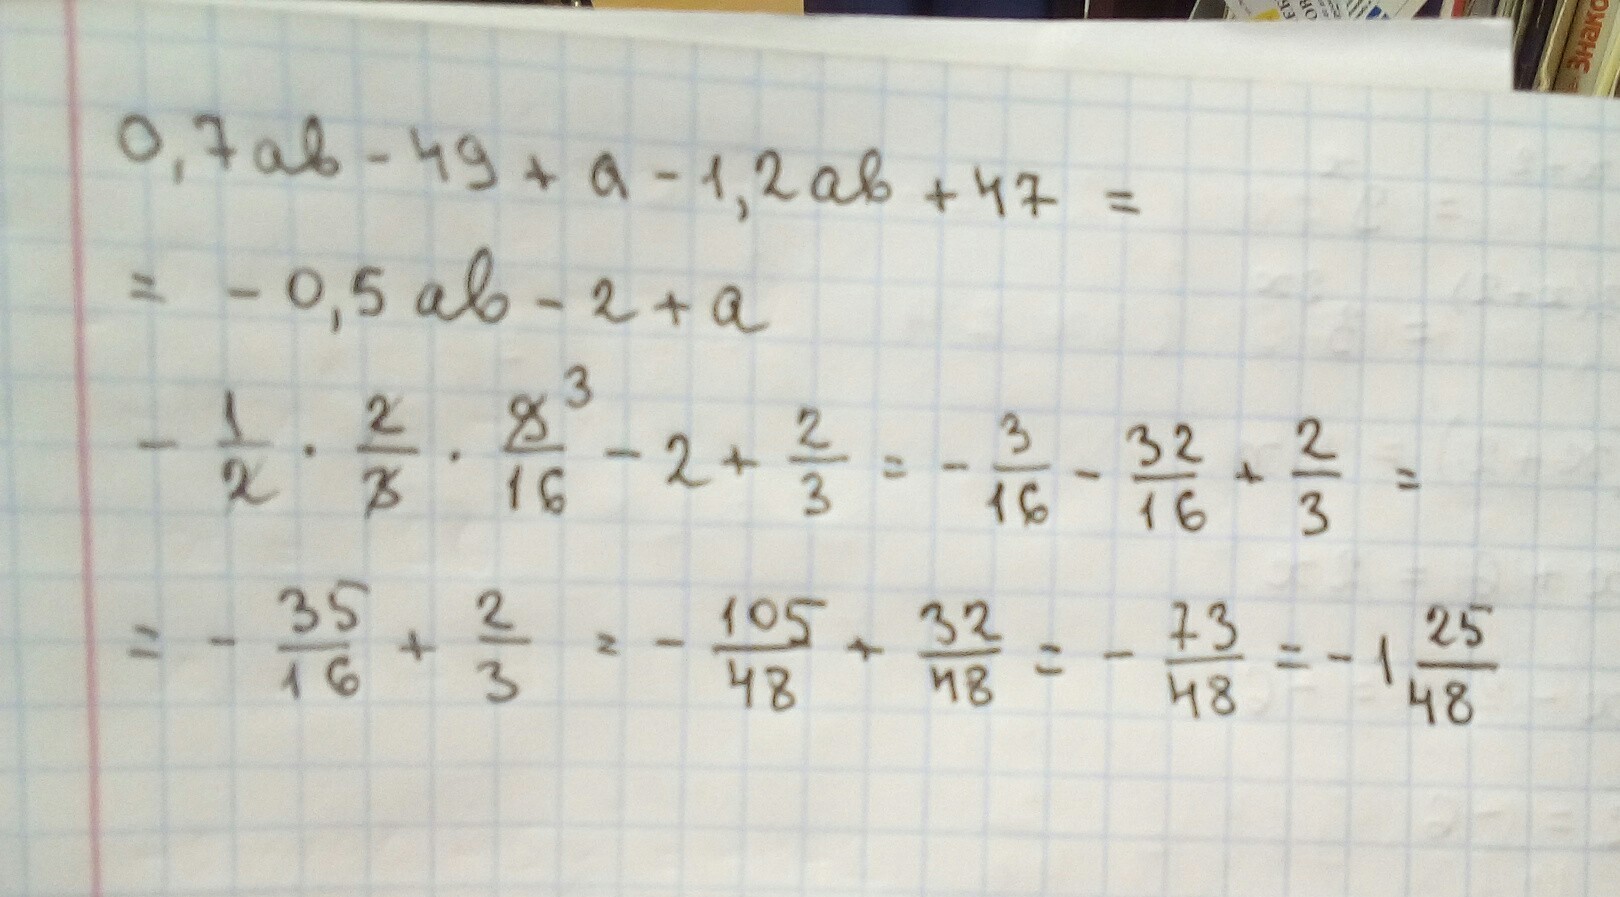 Знако
0,7ab - 49 + a - 1,2ab + 47 =
= - 0,5 ab - 2 + a
- 1/2 · 2/3 · 9^3/16 - 2 + 2/3 = - 3/16 - 32/16 + 2/3 =
= - 35/16 + 2/3 = - 105/48 + 32/48 = - 73/48 = - 1 25/48